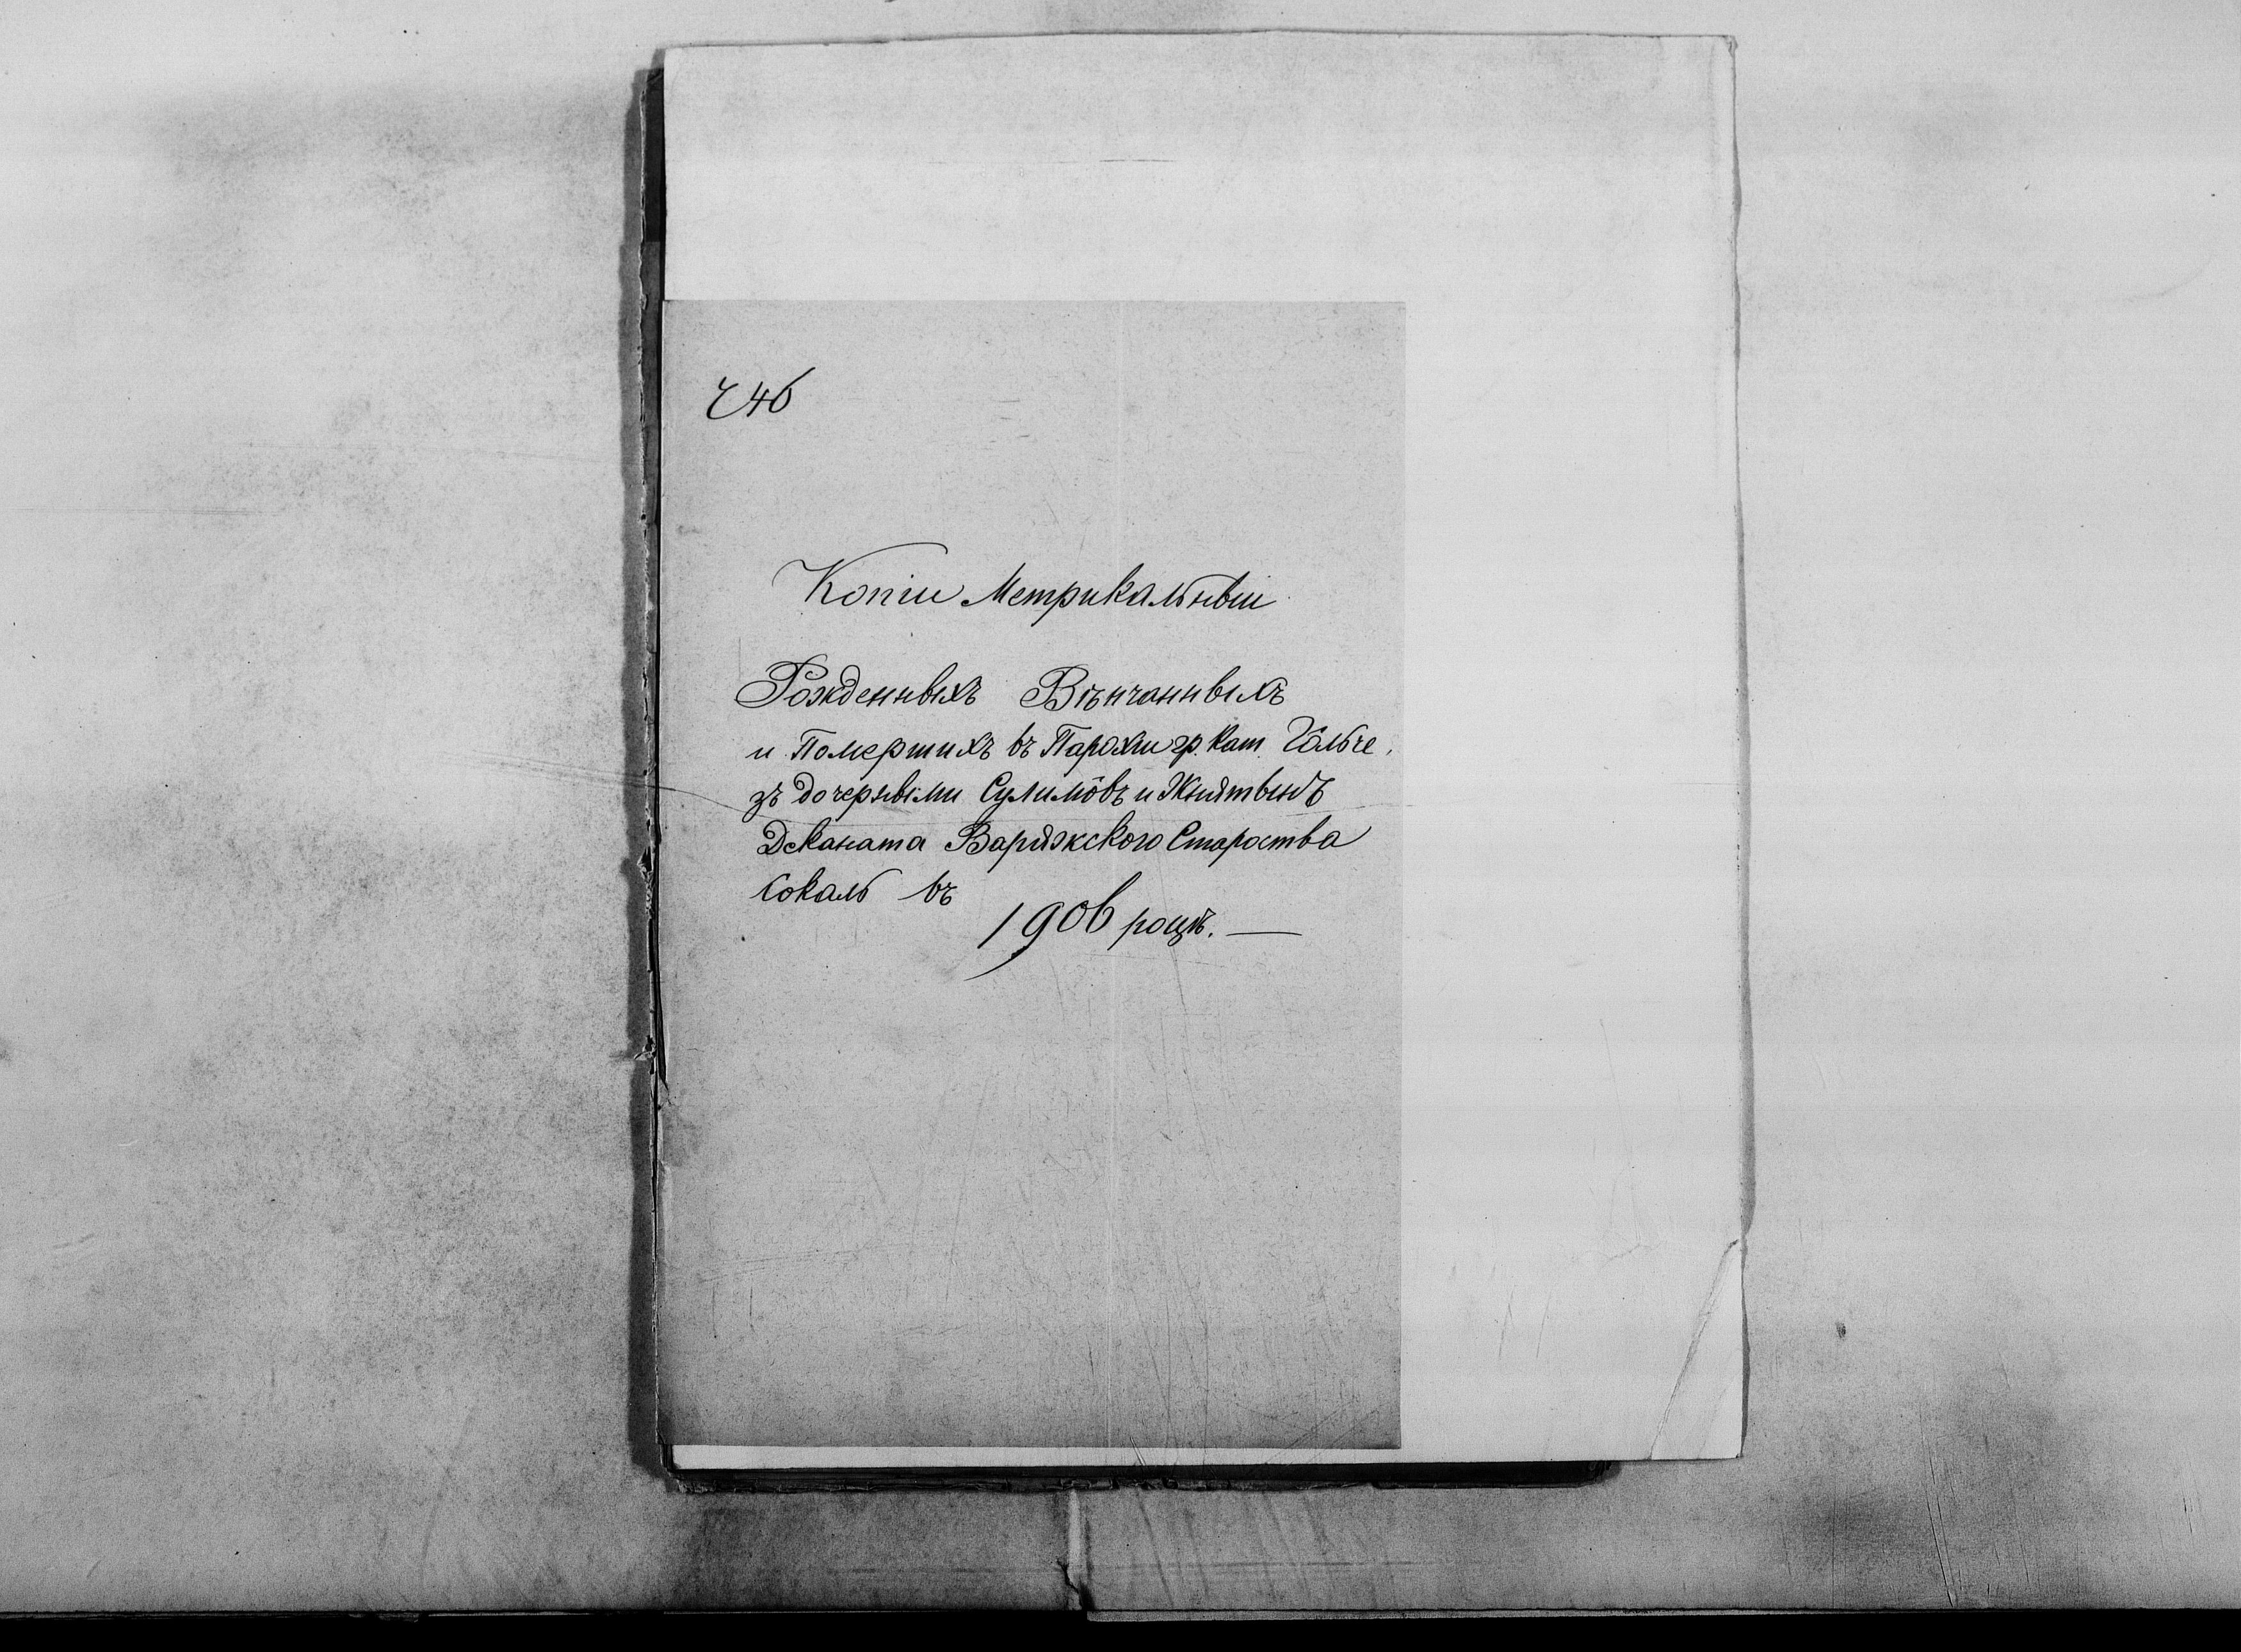 Ч 46
Копіи Метрикальныи
Рожденныхъ Вѣнчанныхъ
и Помершихъ въ Парохіи гр. кат. Гольче
зъ дочерными Сулимôвъ и Жнятынъ
Деканата Варяжского Староства
Сокаль въ
1906 роцѣ. —